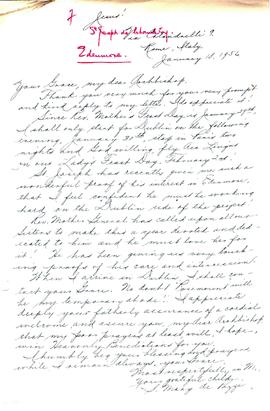 Jesus!
St Joseph of
Rome, Italy
Edenmore.
January 18, 1956
Your Grace, my dear Archbishop,
Thank you very much for your very prompt
and kind reply to my letter. I appreciate it.
Since Rev. Mother's Feast Day is January 29th
I shall only start for Dublin on the following
evening, January 30th, stay in Paris two
nights and God willing fly Aer Lingus
on our Lady's Feast Day, February 2nd.
St. Joseph has recently given me such a
wonderful proof of his interest in Edenmore
that I feel confident he must be working
hard on the Dublin side of the project.
Rev. Mother General has called upon all our
Sisters to make this a year devoted and dedi-
cated to him and he must love her for
it! He has been giving us very touch-
ing proofs of his care and intercession.
When I arrive in Dublin I shall con-
tact your Grace. No doubt
be my temporary abode! I appreciate
deeply your fatherly assurance of a cordial
welcome and assure you, my dear Archbishop
that my poor prayers at least will, I hope,
win Heavenly Benedictions for you.
I humbly beg your blessing and prayers
while I remain always, your Grace,
Most respectfully in
Your grateful child,